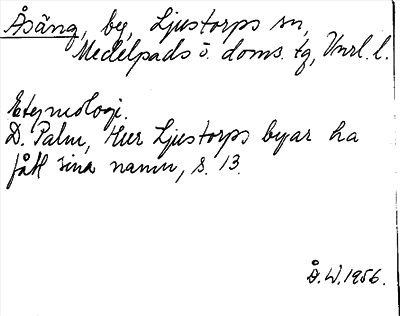 Åsäng, by, Ljustorps sn,
Medelpads ö. doms. tg, Vnrl. l.
Etymologi.
D. Palm, Hur Ljustorps byar ha
fått sina namn, s. 13.
D.W. 1956.